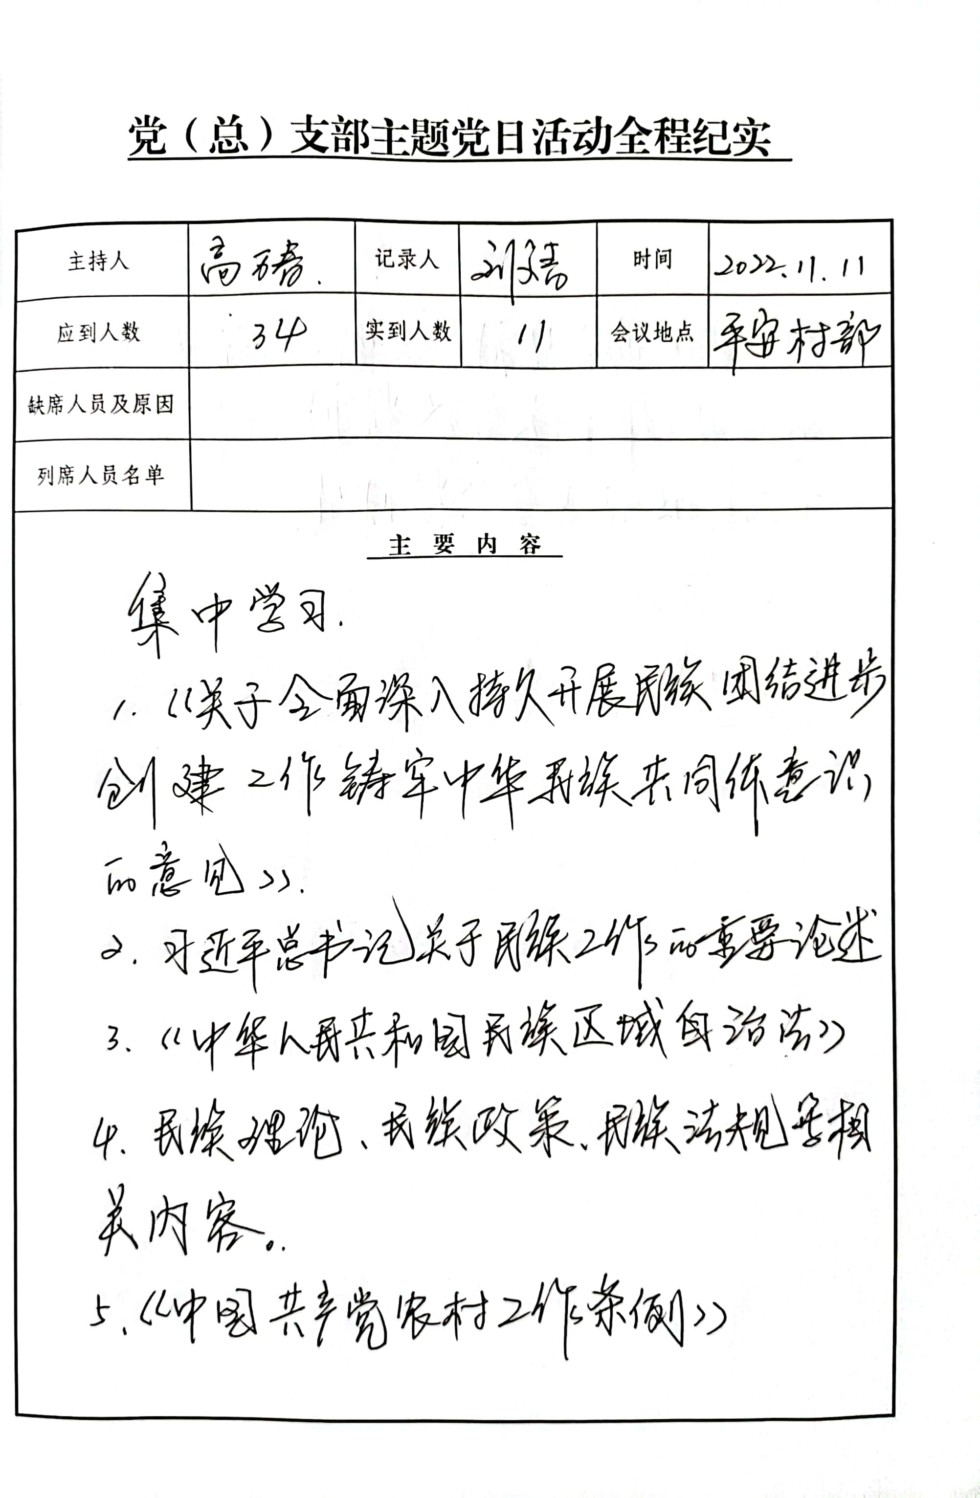 党（总）支部主题党日活动全程纪实
主持人 高万春. 记录人 时间 2022.11.11
应到人数 34 实到人数 11 会议地点 平安村部
缺席人员及原因
列席人员名单
主要内容
集中学习.
1.《关于全面深入持久开展民族团结进步
创建工作铸牢中华民族共同体意识
的意见》.
2.习近平总书记关于民族工作的重要论述
3.《中华人民共和国民族区域自治法》
4.民族理论、民族政策、民族法规等相
关内容。
5.《中国共产党农村工作条例》